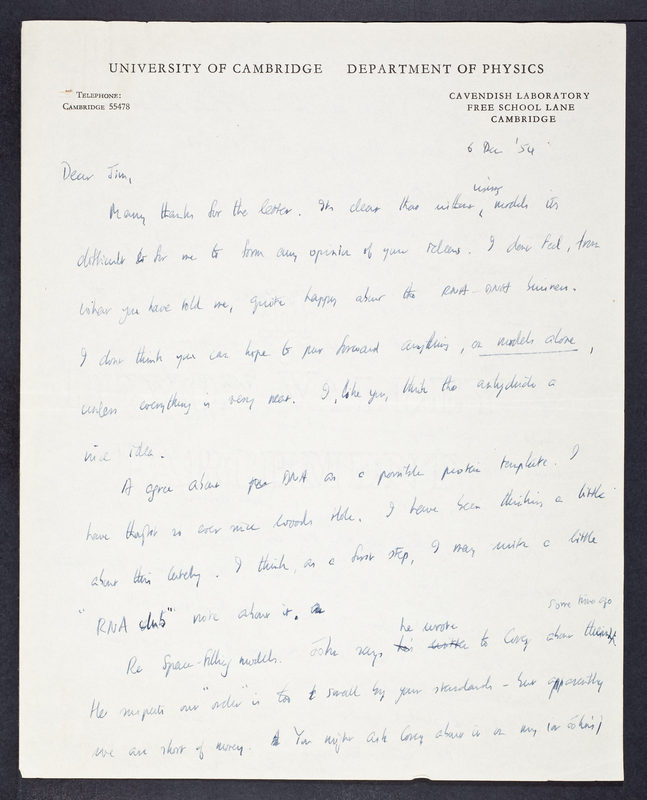 UNIVERSITY OF CAMBRIDGE DEPARTMENT OF PHYSICS
TELEPHONE:
CAMBRIDGE 55478
CAVENDISH LABORATORY
FREE SCHOOL LANE
CAMBRIDGE
6 Dec '54
Dear Jim,
Many thanks for the letter. Its clear that without using models its
difficult for me to form any opinion of your ideas. I don't feel, from
what you have told me, quite happy about the RNA-DNA business.
I don't think you can hope to put forward anything, on models alone,
unless everything is very neat. I, like you, think the anhydride a
nice idea.
I agree about DNA as a possible protein template. I
have thought so ever since Woods Hole. I have been thinking a little
about this lately. I think, as a first step, I may write a little
"RNA club" note about it.
Re Space-filling models. John says he wrote to Corey about some time ago
He suspects our "order" is too small by your standards - but apparently
we are short of money. You might ask Corey about it on my (or John's)